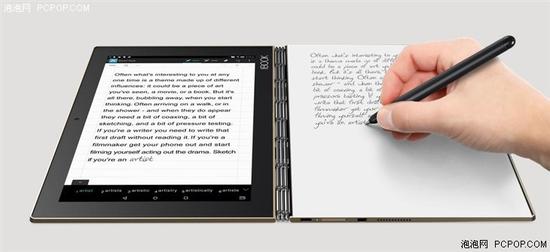 泡泡网 PCPOP.COM
BOOK
Often what's interesting to you at any
one time is a theme made up of different
influences: it could be a piece of art
you've seen, a movie, or a book. But it's
all there, bubbling away, when you start
thinking. Often arriving on a walk, or in
the shower - and when they do appear
they need a bit of coaxing, a bit of
sketching, and a bit of pressure testing.
If you're a writer you need to write that
first draft without reading it. If you're a
filmmaker get your phone out and start
filming yourself acting out the drama. Sketch
if you're an artist
artist artists artistic artistry artistically artiste
Often what's interesting to you
one time is a theme made up
could be a piece of art you
book. But it's all there,
start thinking. Often
shower - and when
bit of coaxing, a bit of
pressure testing. If
write that first draft
filmmaker get your phone
filming yourself
you're an artist
泡泡网 PCPOP.COM